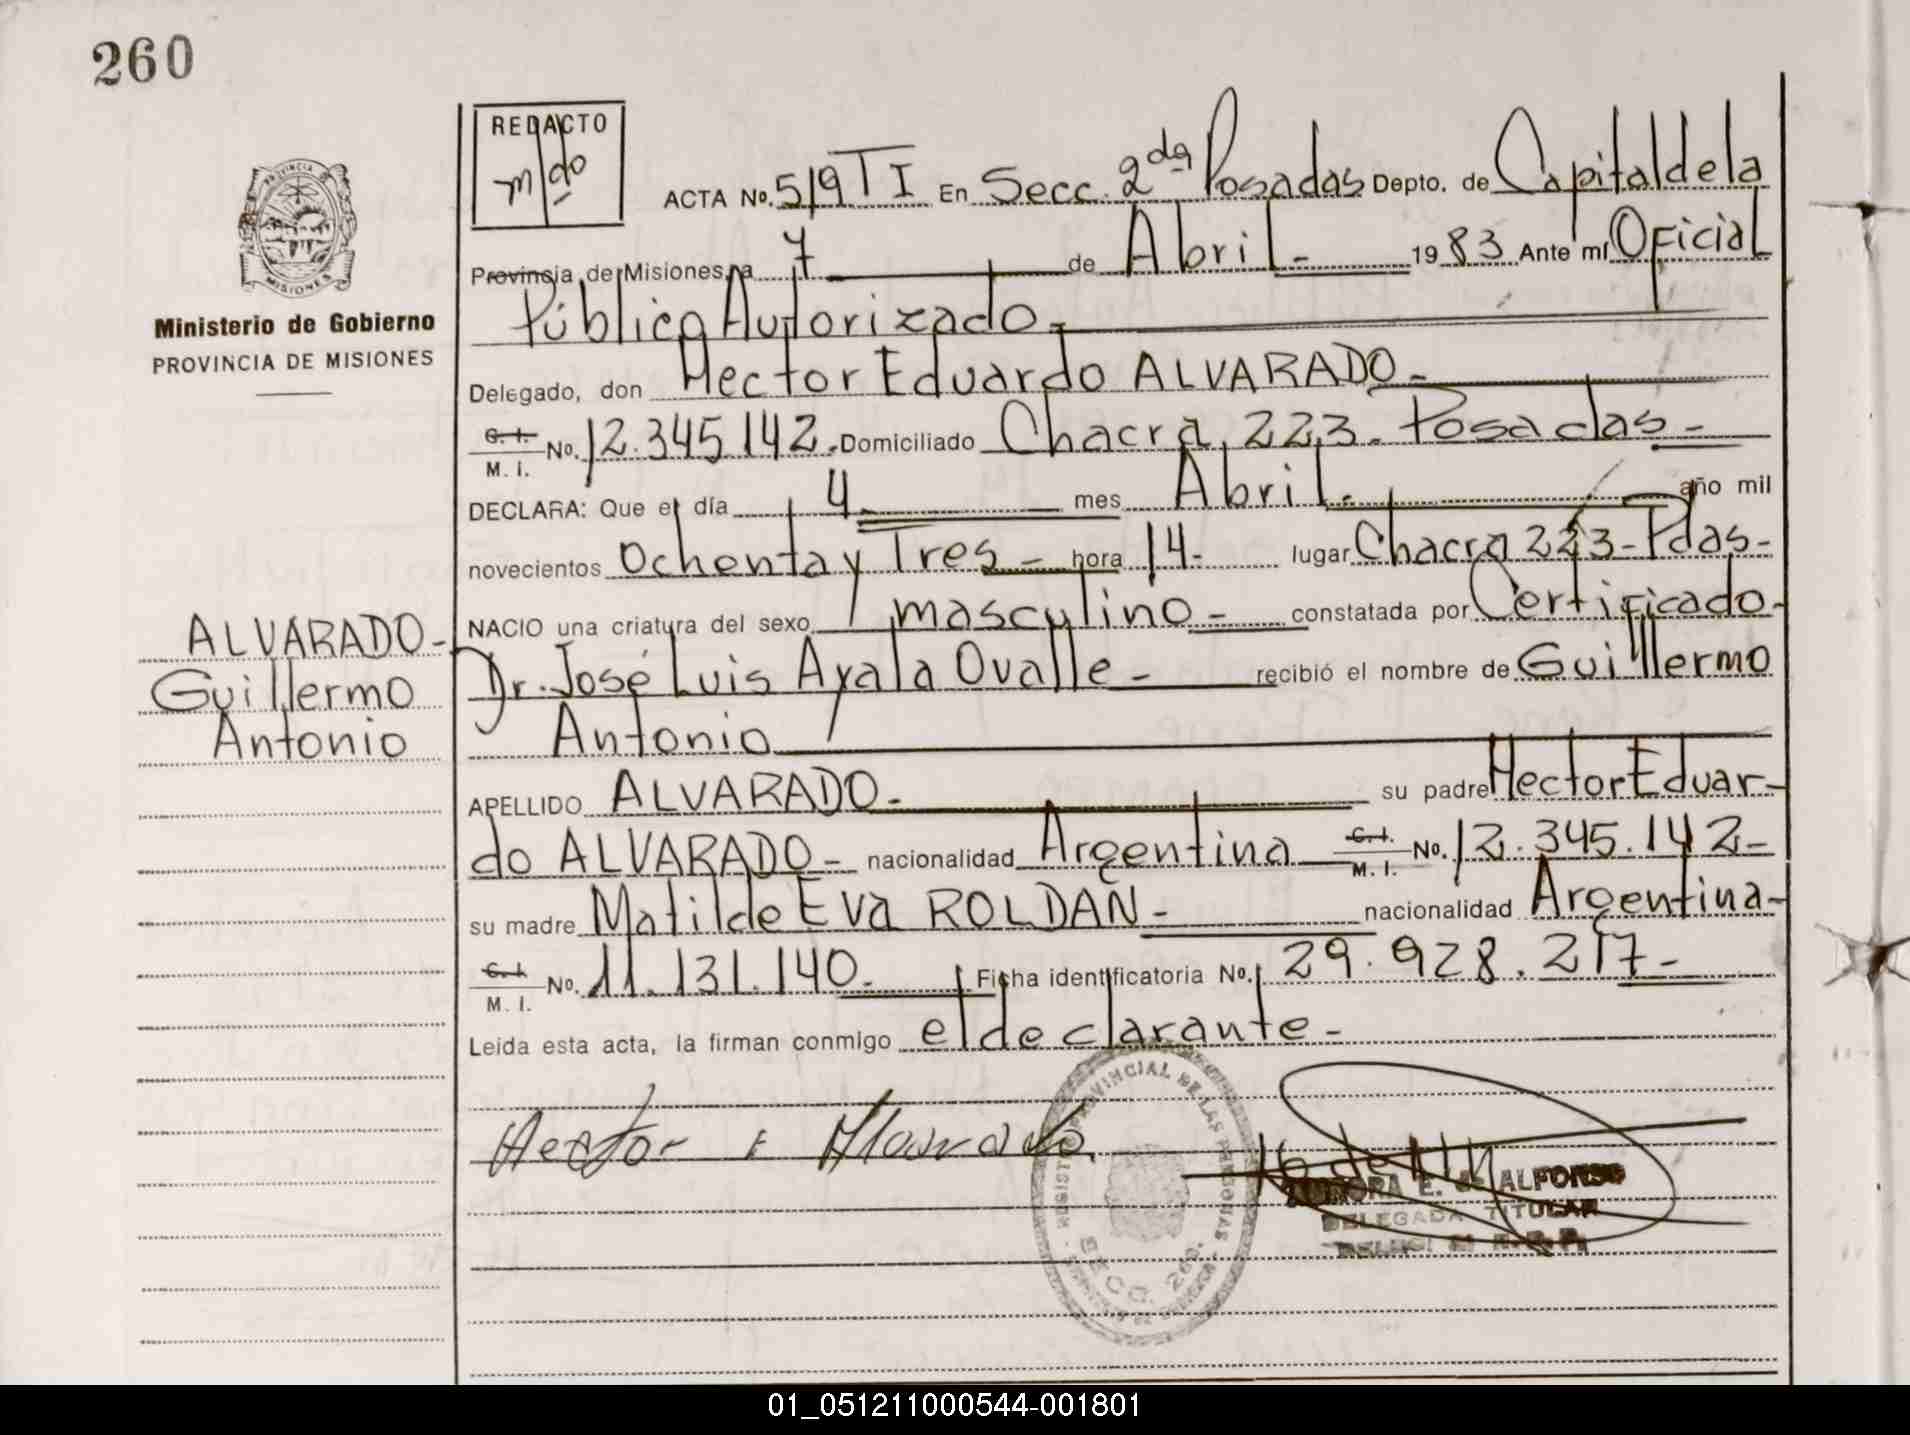 260
REDACTO
ACTA No. 519 T I En Secc. 2da Posadas Depto. de Capital de la
Provincia de Misiones, a 7 de Abril.- 1983 Ante mí Oficial
Público Autorizado.-
Delegado, don Hector Eduardo ALVARADO-
C. I.
M. I. No. 12.345.142. Domiciliado Chacra 223. Posadas-
DECLARA: Que el día 4 mes Abril.- año mil
novecientos Ochenta y Tres- hora 14- lugar Chacra 223-Pdas-
NACIO una criatura del sexo masculino- constatada por Certificado-
Dr. José Luis Ayala Ovalle- recibió el nombre de Guillermo
Antonio
APELLIDO ALVARADO- su padre Hector Eduar-
do ALVARADO- nacionalidad Argentina C. I.
M. I. No. 12.345.142-
su madre Matilde Eva ROLDAN- nacionalidad Argentina-
C. I.
M. I. No. 11.131.140- Ficha identificatoria No. 29.928.217-
Leída esta acta, la firman conmigo el declarante-
Hector E Alvarado
PROVINCIA DE
MISIONES
Ministerio de Gobierno
PROVINCIA DE MISIONES
ALVARADO-
Guillermo
Antonio
REGISTRO PROVINCIAL DE LAS PERSONAS
SECC. 2da.
ALFONSO
DELEGADA TITULAR
01_051211000544-001801